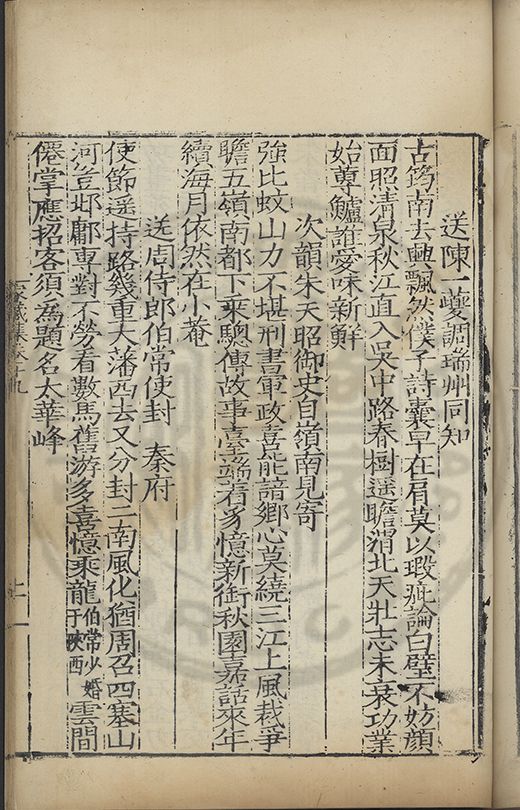 送陳一夔調瑞州同知
古筠南去興飄然僕子詩囊早在肩莫以瑕疵論白璧不妨顏
面照清泉秋江直入吳中路春樹遥瞻渭北天壯志未衰功業
始蓴鱸誰愛味新鮮
次韻朱天昭御史自嶺南見寄
強比蚊山力不堪刑書軍政喜能諳鄉心莫繞三江上風裁爭
瞻五嶺南都下來驄傳故事臺端着豸憶新銜秋園嘉話來年
續海月依然在小菴
送周侍郎伯常使封 秦府
使節遥持路幾重大藩西去又分封二南風化猶周召四塞山
河豈邶鄘專對不勞看數馬舊游多喜憶乘龍伯常少婚于陝西雲間
僊掌應招客須為題名太華峰
家藏集卷十九